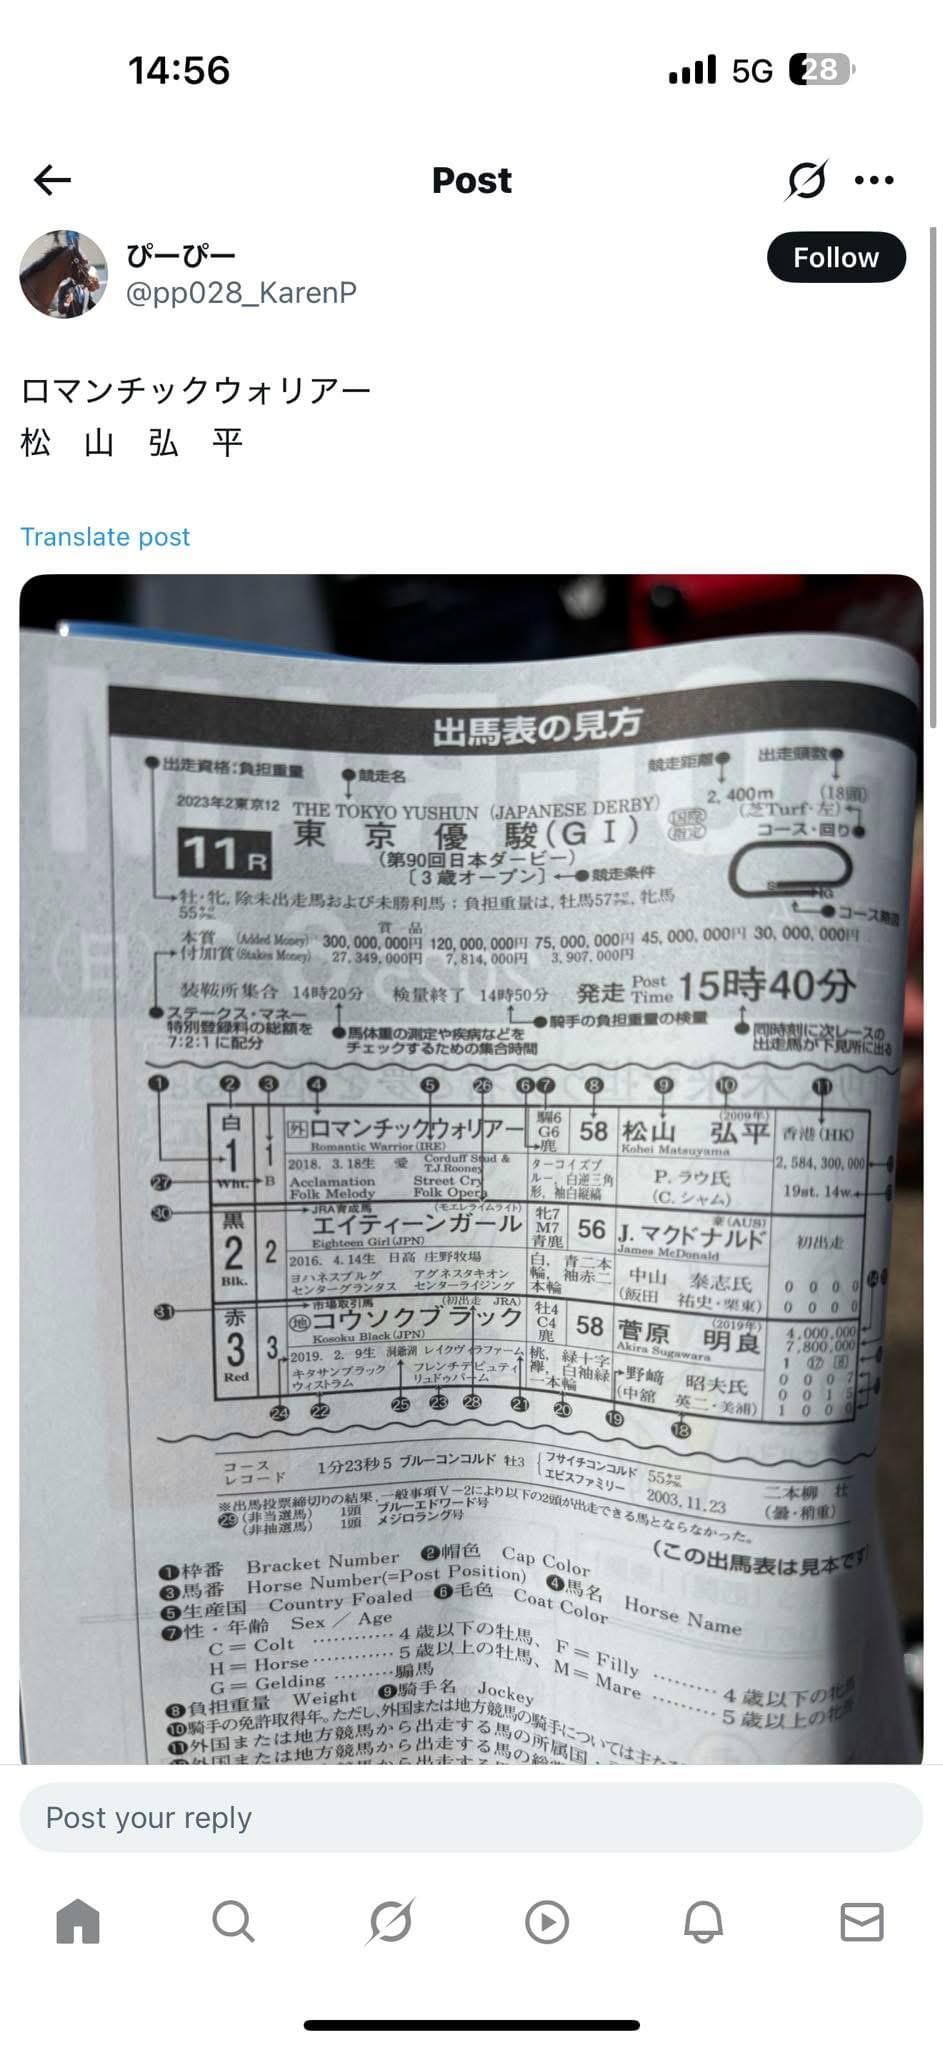 14:56
5G 28
Post
ぴーぴー
@pp028_KarenP
Follow
ロマンチックウォリアー
松 山 弘 平
Translate post
出馬表の見方
出走資格:負担重量
競走名
競走距離
出走頭数
2023年2東京12 THE TOKYO YUSHUN (JAPANESE DERBY)
国際 指定
2,400m (18頭)
(芝Turf・左)
11R 東京優駿(GI)
コース・回り
(第90回日本ダービー)
[3歳オープン] 競走条件
牡・牝, 除未出走馬および未勝利馬:負担重量は, 牡馬57㌔, 牝馬
55㌔
コース
賞 品
本賞 (Added Money) 300,000,000円 120,000,000円 75,000,000円 45,000,000円 30,000,000円
付加賞(Stakes Money) 27,349,000円 7,814,000円 3,907,000円
装鞍所集合 14時20分 検量終了 14時50分 発走 Post Time 15時40分
ステークス・マネー
特別登録料の総額を
7:2:1に配分
馬体重の測定や疾病などを
チェックするための集合時間
騎手の負担重量の検量
同時刻に次レースの
出走馬が下見所に出る
❶ ❷ ❸ ❹ ❺ ㉖ ❻ ❼ ❽ ❾ ❿ ⓫
白 1 Wht. 1 B
外 ロマンチックウォリアー
Romantic Warrior(IRE)
2018. 3.18生 愛 Corduff Stud & T.J.Rooney
Acclamation Street Cry
Folk Melody Folk Opera
騸6 G6 鹿
ターコイズブルー, 白逆三角形, 袖白縦縞
58 松山 弘平 (2009年)
Kohei Matsuyama
P. ラウ氏
(C. シャム)
香港(HK)
2,584,300,000
19st. 14w.
㉗
㉚
黒 2 Blk. 2
JRA育成馬 (モエレライムライト)
エイティーンガール
Eighteen Girl(JPN)
2016. 4.14生 日高 庄野牧場
ヨハネスブルグ アグネスタキオン
センターグランタス センターライジング
牝7 M7 青鹿
白, 青二本輪, 袖赤二本輪
56 J. マクドナルド 豪(AUS)
James McDonald
中山 泰志氏
(飯田 祐史・栗東)
初出走
0 0 0 0
0 0 0 0
㉛
赤 3 Red 3
市場取引馬 (初出走 JRA)
地 コウソクブラック
Kosoku Black(JPN)
2019. 2. 9生 洞爺湖 レイクヴィラファーム
キタサンブラック フレンチデピュティ
ウィストラム リュドゥパーム
牡4 C4 鹿
桃, 緑十字襷, 白袖緑一本輪
58 菅原 明良 (2019年)
Akira Sugawara
野﨑 昭夫氏
(中舘 英二・美浦)
4,000,000
7,800,000
0 0 0
0 0 1
1 0 0 0
㉔ ㉒ ㉕ ㉓ ㉘ ㉑ ⓴ ⓳ ⓲
コース
レコード 1分23秒5 ブルーコンコルド 牡3 フサイチコンコルド 55㌔ 二本柳 壮
エビスファミリー 2003.11.23 (曇・稍重)
※出馬投票締切りの結果, 一般事項V-2により以下の2頭が出走できる馬とならなかった。
㉙(非当選馬) 1頭 ブルーエドワード号
(非抽選馬) 1頭 メジロラング号
(この出馬表は見本です
❶枠番 Bracket Number ❷帽色 Cap Color
❸馬番 Horse Number(=Post Position) ❹馬名 Horse Name
❺生産国 Country Foaled ❻毛色 Coat Color
❼性・年齢 Sex/Age
C=Colt ………… 4歳以下の牡馬、F=Filly ……… 4歳以下の牝
H=Horse ………… 5歳以上の牡馬、M=Mare ……… 5歳以上の牝
G=Gelding ……… 騸馬
❽負担重量 Weight ❾騎手名 Jockey
❿騎手の免許取得年。ただし、外国または地方競馬の騎手については主な
⓫外国または地方競馬から出走する馬の所属国
外国または地方競馬から出走する馬の総
Post your reply